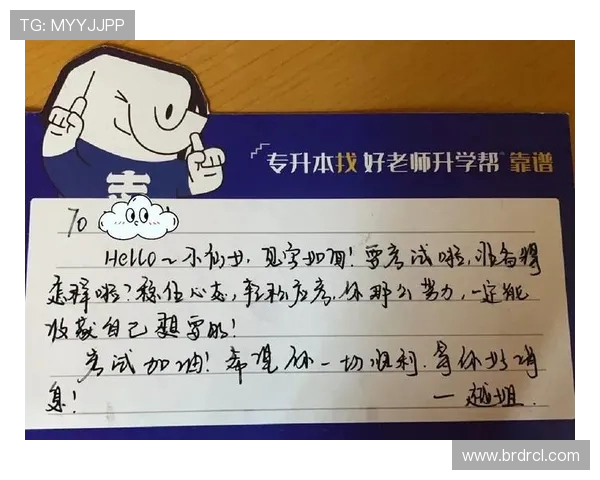 TG: MYYJJPP
专升本找 好老师升学帮 靠谱
To
Hello~小仙女，见字如面！要考试啦，准备得
怎样啦？稳住心态，轻松应考，你那么努力，一定能
收获自己想要的！
考试加油！希望你一切顺利，等你好消
息！
—越姐.
www.brdrcl.com